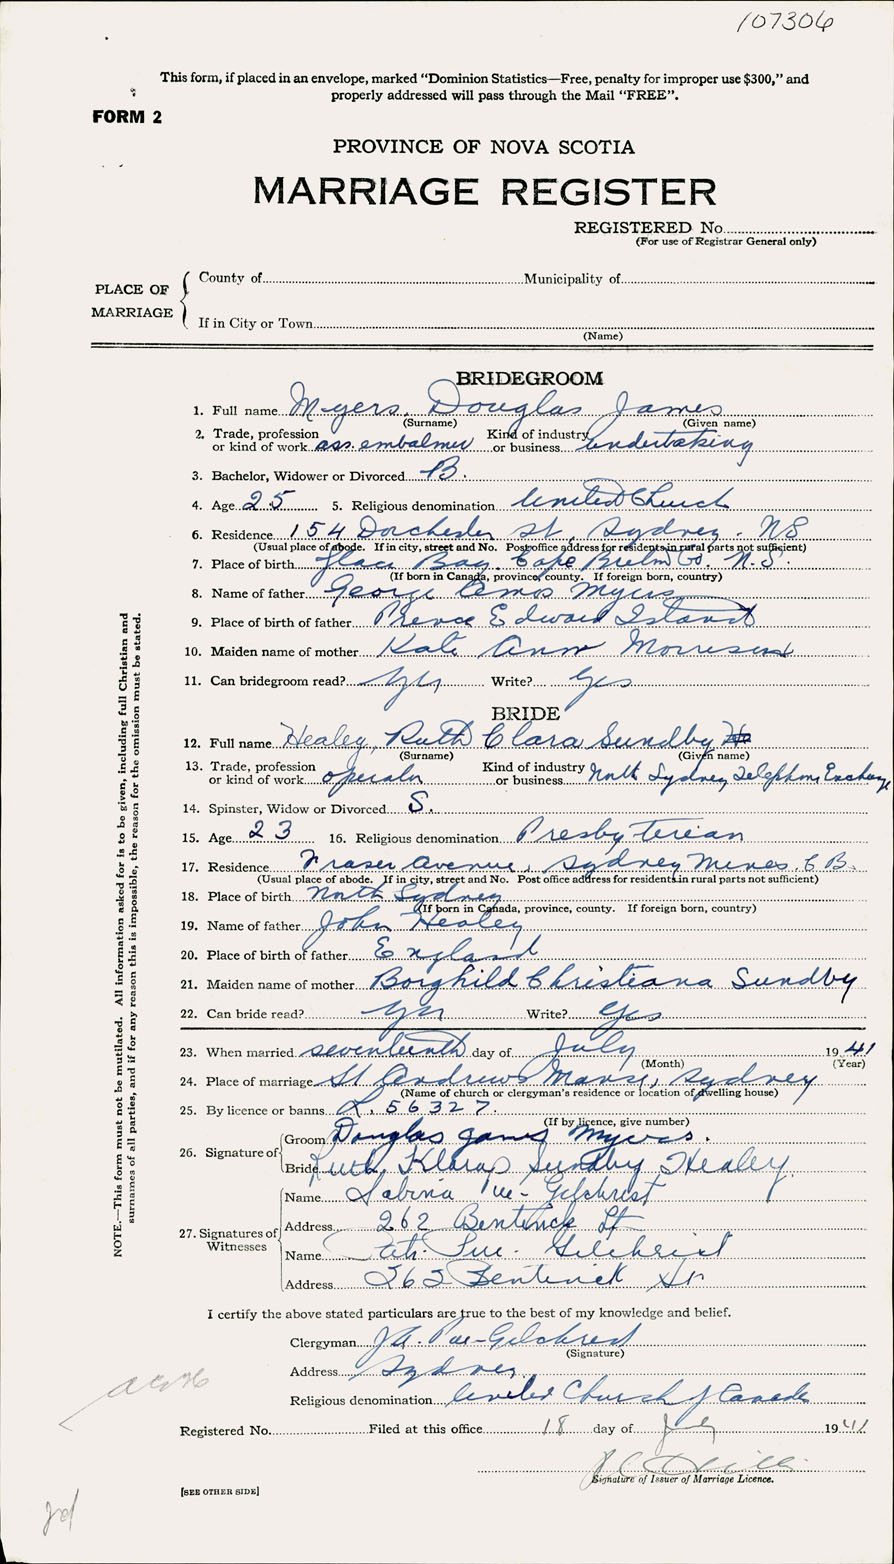 107306
This form, if placed in an envelope, marked "Dominion Statistics—Free, penalty for improper use $300," and
properly addressed will pass through the Mail "FREE".
FORM 2
PROVINCE OF NOVA SCOTIA
MARRIAGE REGISTER
REGISTERED No.
(For use of Registrar General only)
PLACE OF MARRIAGE
County of Municipality of
If in City or Town
(Name)
BRIDEGROOM
1. Full name Myers, Douglas James
(Surname) (Given name)
2. Trade, profession or kind of work ass. embalmer Kind of industry or business undertaking
3. Bachelor, Widower or Divorced B.
4. Age 25 5. Religious denomination United Church
6. Residence 154 Dorchester St, Sydney. NS
(Usual place of abode. If in city, street and No. Post office address for residents in rural parts not sufficient)
7. Place of birth Glace Bay. Cape Breton Co. N.S.
(If born in Canada, province, county. If foreign born, country)
8. Name of father George Amos Myers
9. Place of birth of father Prince Edward Island
10. Maiden name of mother Kate Ann Morrison
11. Can bridegroom read? Yes Write? Yes
BRIDE
12. Full name Healey, Ruth Clara Sundby
(Surname) (Given name)
13. Trade, profession or kind of work operator Kind of industry or business North Sydney Telephone Exchange
14. Spinster, Widow or Divorced S.
15. Age 23 16. Religious denomination Presbyterian
17. Residence Fraser Avenue, Sydney Mines. C B.
(Usual place of abode. If in city, street and No. Post office address for residents in rural parts not sufficient)
18. Place of birth North Sydney
(If born in Canada, province, county. If foreign born, country)
19. Name of father John Healey
20. Place of birth of father England
21. Maiden name of mother Borghild Christiana Sundby
22. Can bride read? Yes Write? Yes
23. When married seventeenth day of July 1941
(Month) (Year)
24. Place of marriage St Andrews Manse, Sydney
(Name of church or clergyman's residence or location of dwelling house)
25. By licence or banns L. 56327.
(If by licence, give number)
26. Signature of
Groom Douglas James Myers.
Bride Ruth Klara Sundby Healey.
27. Signatures of Witnesses
Name Sabina Pue-Gilchrist
Address 262 Bentinck St
Name Pue-Gilchrist
Address 262 Bentinck St
I certify the above stated particulars are true to the best of my knowledge and belief.
Clergyman J A. Pue-Gilchrist
(Signature)
Address Sydney
Religious denomination United Church of Canada
Registered No. Filed at this office 18 day of July 1941
Signature of Issuer of Marriage Licence.
[SEE OTHER SIDE]
NOTE.—This form must not be mutilated. All information asked for is to be given, including full Christian and
surnames of all parties, and if for any reason this is impossible, the reason for the omission must be stated.